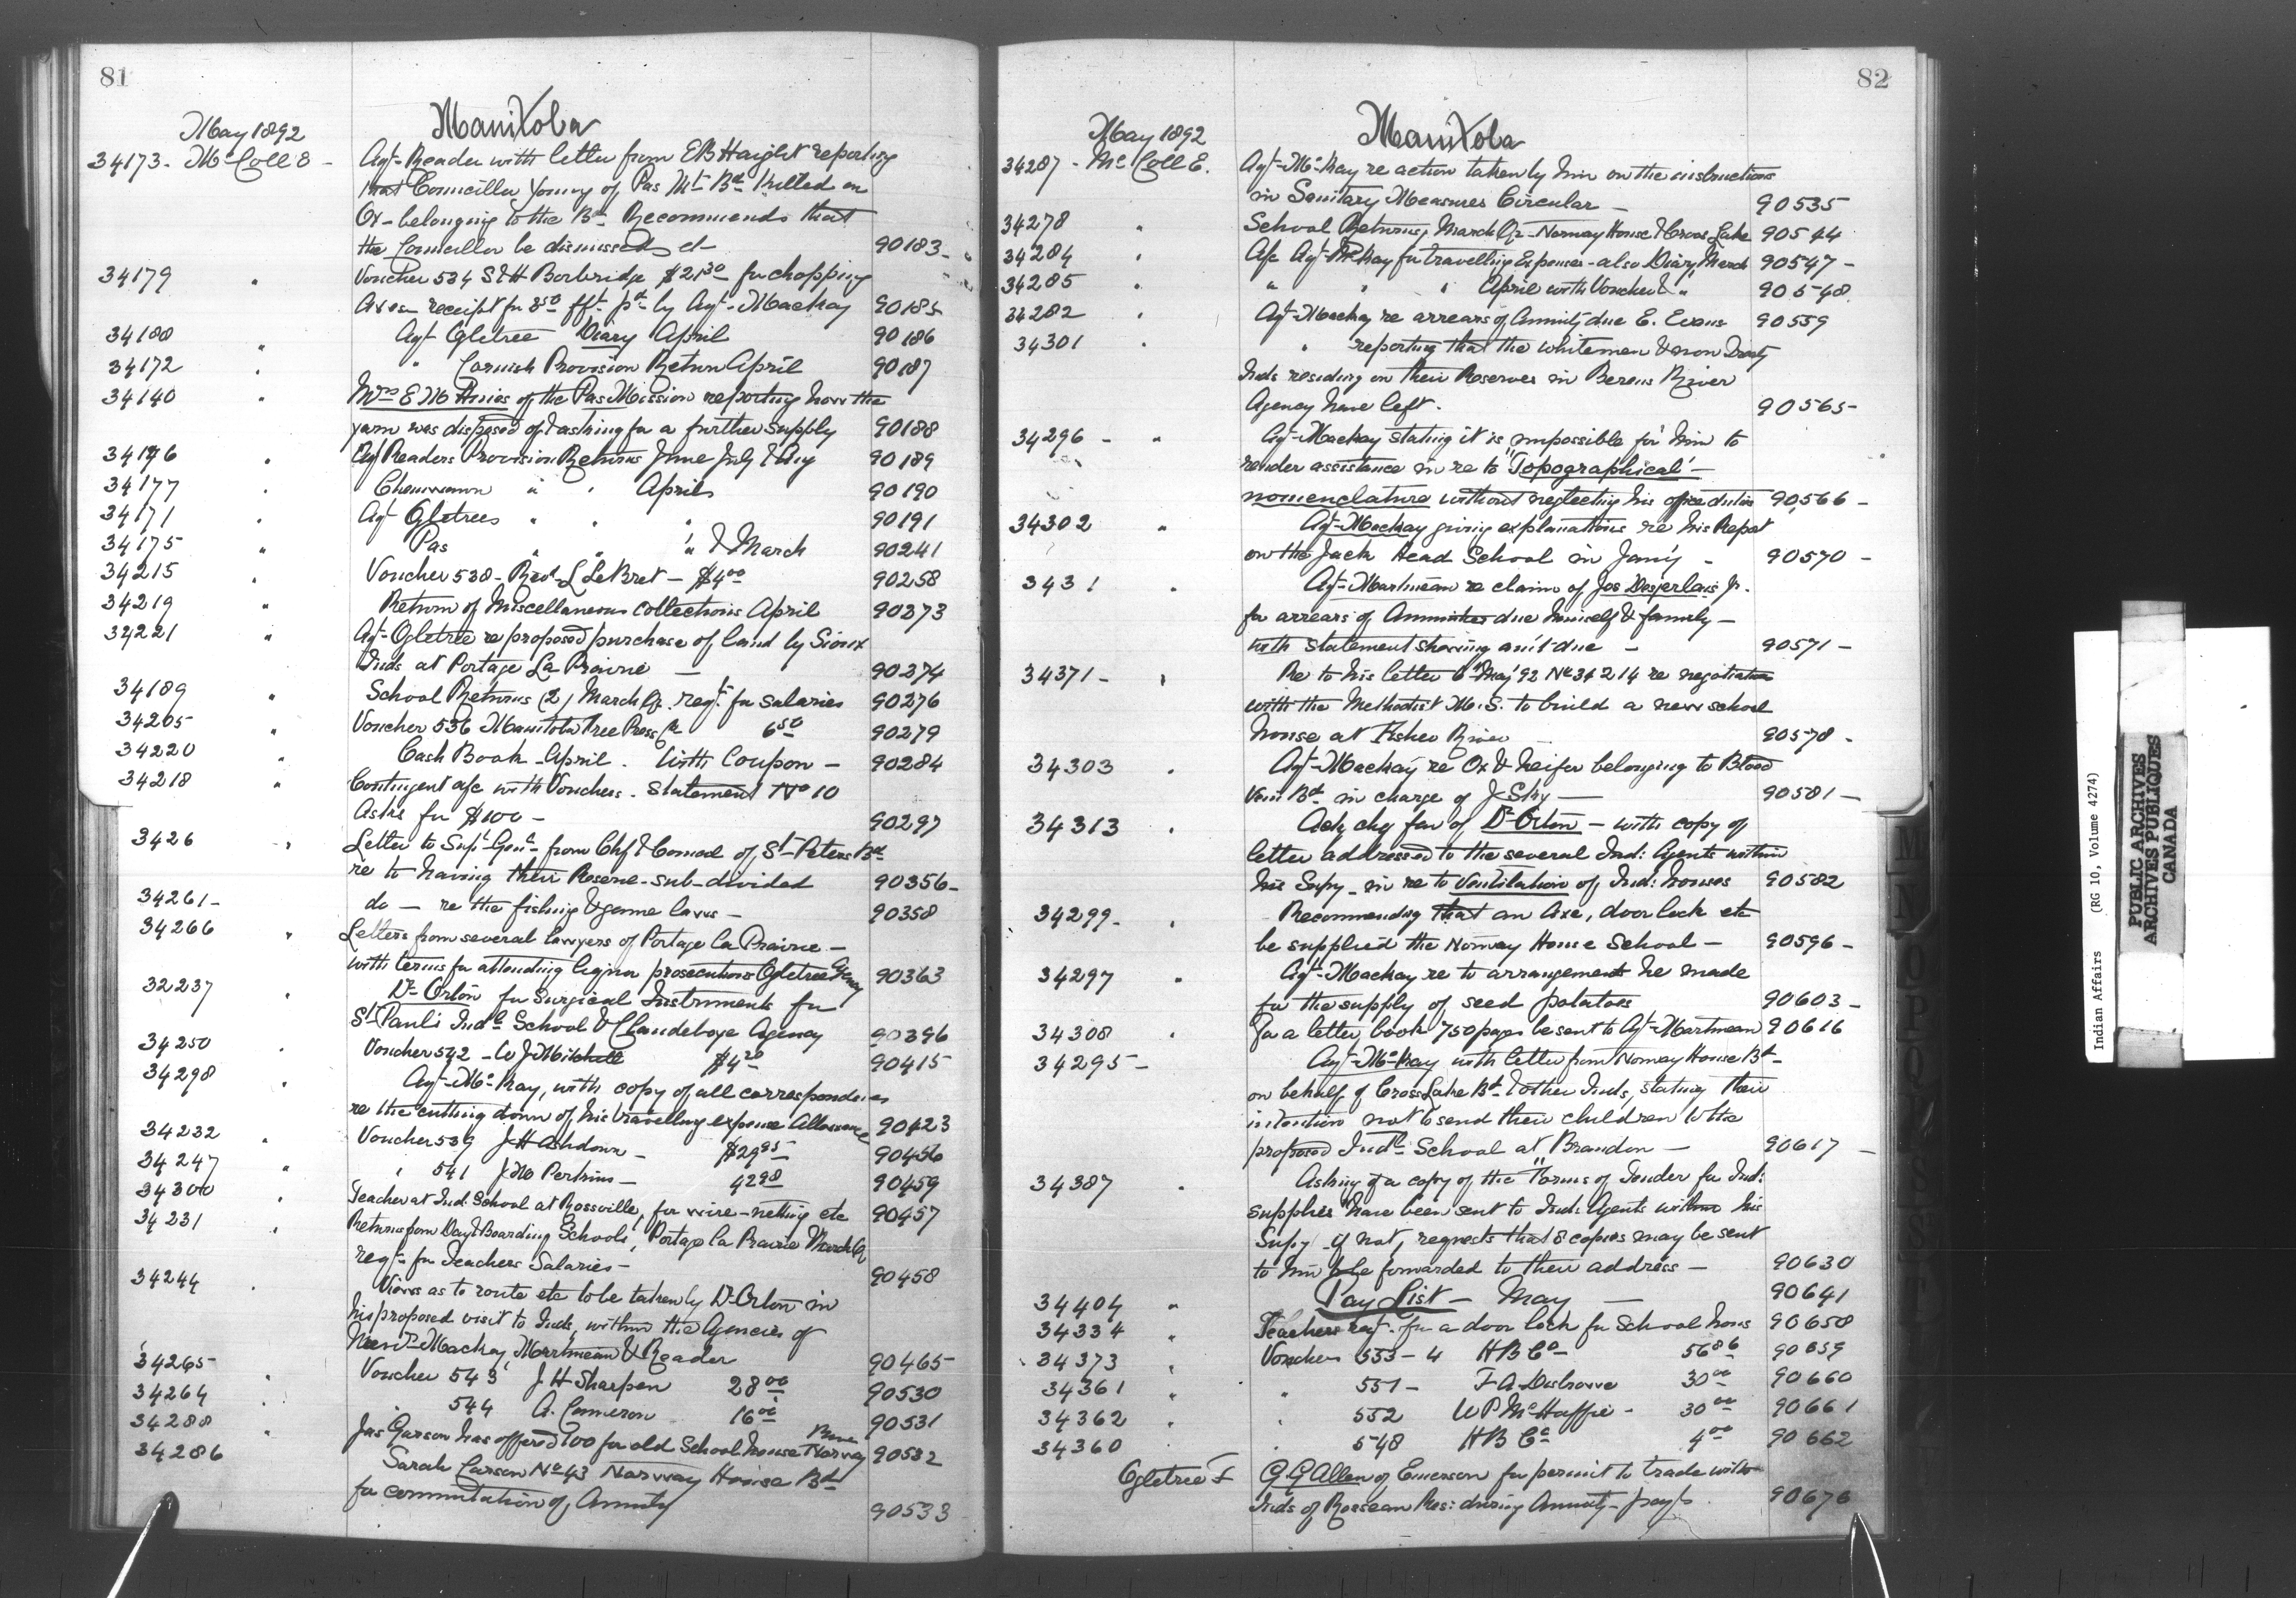 81
May 1892 Manitoba
34173 - McColl E - Agt Reader with letter from EB Haight reporting
that Councillor Young of Pas Mt Bd killed an
Ox - belonging to the Bd Recommends that
the Councillor be dismissed 90183 -
34179 " Voucher 534 S & H Borbridge $21 30 for chopping
Axes receipt for 8 50 pd by Agt Mackay 90185
34188 " Agt Ogletree Diary April 90186
34172 " " Cornish Provision Return April 90187
34140 " Mrs E M of the Pas Mission reporting how the
yarn was disposed of & asking for a further supply 90188
34176 " Agt Readers Provision Returns June July & Aug 90189
34177 " Chemawawin " " April 90190
34171 " Agt Ogletrees " " " 90191
34175 " Pas " " " & March 90241
34215 " Voucher 538 - Revd L LeBret - $4 00 90258
34219 " Return of Miscellaneous Collections April 90273
34221 " Agt Ogletree re proposed purchase of land by Sioux
Inds at Portage La Prairie - 90274
34189 " School Returns (2) March Qr reqt for salaries 90276
34205 " Voucher 536 Manitoba Free Press Co 6 50 90279
34220 " Cash Book - April . With Coupon - 90284
34218 " Contingent a/c with Vouchers . Statement No 10
Asks for $100 - 90297
3426 " Letter to Supt Genl from Chf & Council of St Peters Bd
re to having their Reserve sub-divided 90356 -
34261 - do - re the fishing & game laws - 90358
34266 " Letters from several lawyers of Portage la Prairie -
with terms for attending liquor prosecutions Ogletree Agency 90363
32237 " Dr Orton for Surgical Instruments for
St Pauls Indl School & Clandeboye Agency 90396
34250 " Voucher 542 - W J Mitchell $4 20 90415
34298 " Agt McKay, with copy of all correspondence
re the cutting down of his travelling expense Allowance 90423
34232 " Voucher 539 J H Ashdown - $29 95 90456
34247 " " 541 J M Perkins - 42 98 90459
34300 " Teacher at Ind. School at Rossville, for wire-netting etc 90457
34231 " Returns from Day & Boarding Schools, Portage la Prairie March Qr
reqt for Teachers Salaries - 90458
34244 " Views as to route etc to be taken by Dr Orton in
his proposed visit to Inds, within the Agencies of
Mackay, Martineau & Reader 90465
34265 " Voucher 543 J H Sharpen 28 00 90530
34264 " 544 A. Cameron 16 00 90531
34288 " Jas Garson has offered 100 for old School house Norway House 90532
34286 Sarah Carson No 43 Norway House Bd
for commutation of Annuity 90533
82
May 1892 Manitoba
34287 - McColl E. Agt McKay re action taken by him on the instructions
in Sanitary Measures Circular - 90535
34278 " School Returns, March Qr - Norway House & Cross Lake 90544
34284 " A/c Agt McKay for travelling Expenses - also Diary March 90547 -
34285 " " " " April with Voucher & " 90548
34282 " Agt Mackay re arrears of Annuity due E. Evans 90559
34301 " " reporting that the whitemen & non Treaty
Inds residing on their Reserves in Berens River
Agency have left. 90565 -
34296 - " Agt Mackay stating it is impossible for him to
render assistance in re to "Topographical -
nomenclature without neglecting his office duties 90,566 -
34302 " Agt Mackay giving explanations re his Report
on the Jack Head School in Jan'y - 90570 -
3431 " Agt Martineau re claim of Jos Desjerlais Jr.
for arrears of Annuities due himself & family -
with statement showing am't due - 90571 -
34371 - " Re to his letter 6" May '92 No 34214 re negotiation
with the Methodist M.S. to build a new school
house at Fisher River - 90578 -
34303 " Agt Mackay re Ox & heifer belonging to Blood
Vein Bd in charge of J Sky - 90581 -
34313 " Ack chq fav of Dr Orton - with copy of
letter addressed to the several Ind: Agents within
his Supy - in re to Ventilation of Ind: houses 90582
34299 - " Recommending that an Axe, door lock etc
be supplied the Norway House School - 90596 -
34297 " Agt Mackay re to arrangements he made
for the supply of seed potatoes 90603 -
34308 " For a letter book 750 pages be sent to Agt Martineau 90616
34295 - Agt McKay with letter from Norway House Bd -
on behalf of Cross Lake Bd & other Inds, stating their
intention not to send their children to the
proposed Indl School at Brandon - 90617 -
34387 " Asking if a copy of the "Forms of Tender for Ind:
supplies" have been sent to Ind: Agents within his
Supy - if not, requests that 8 copies may be sent
to him to be forwarded to their address - 90630
34404 " Pay List - May - 90641
34334 " Teachers reqt. for a door lock for School house 90658
34373 " Voucher 553 - 4 H B Co - 56 86 90659
34361 " " 551 - F A 30 00 90660
34362 " " 552 W P McHaffie - 30 00 90661
34360 " 548 H B Co 4 00 90662
Ogletree F G G Allen of Emerson for permit to trade with
Inds of Rosseau Res: during Annuity - payts. 90676
Indian Affairs (RG 10, Volume 4274)
PUBLIC ARCHIVES
ARCHIVES PUBLIQUES
CANADA